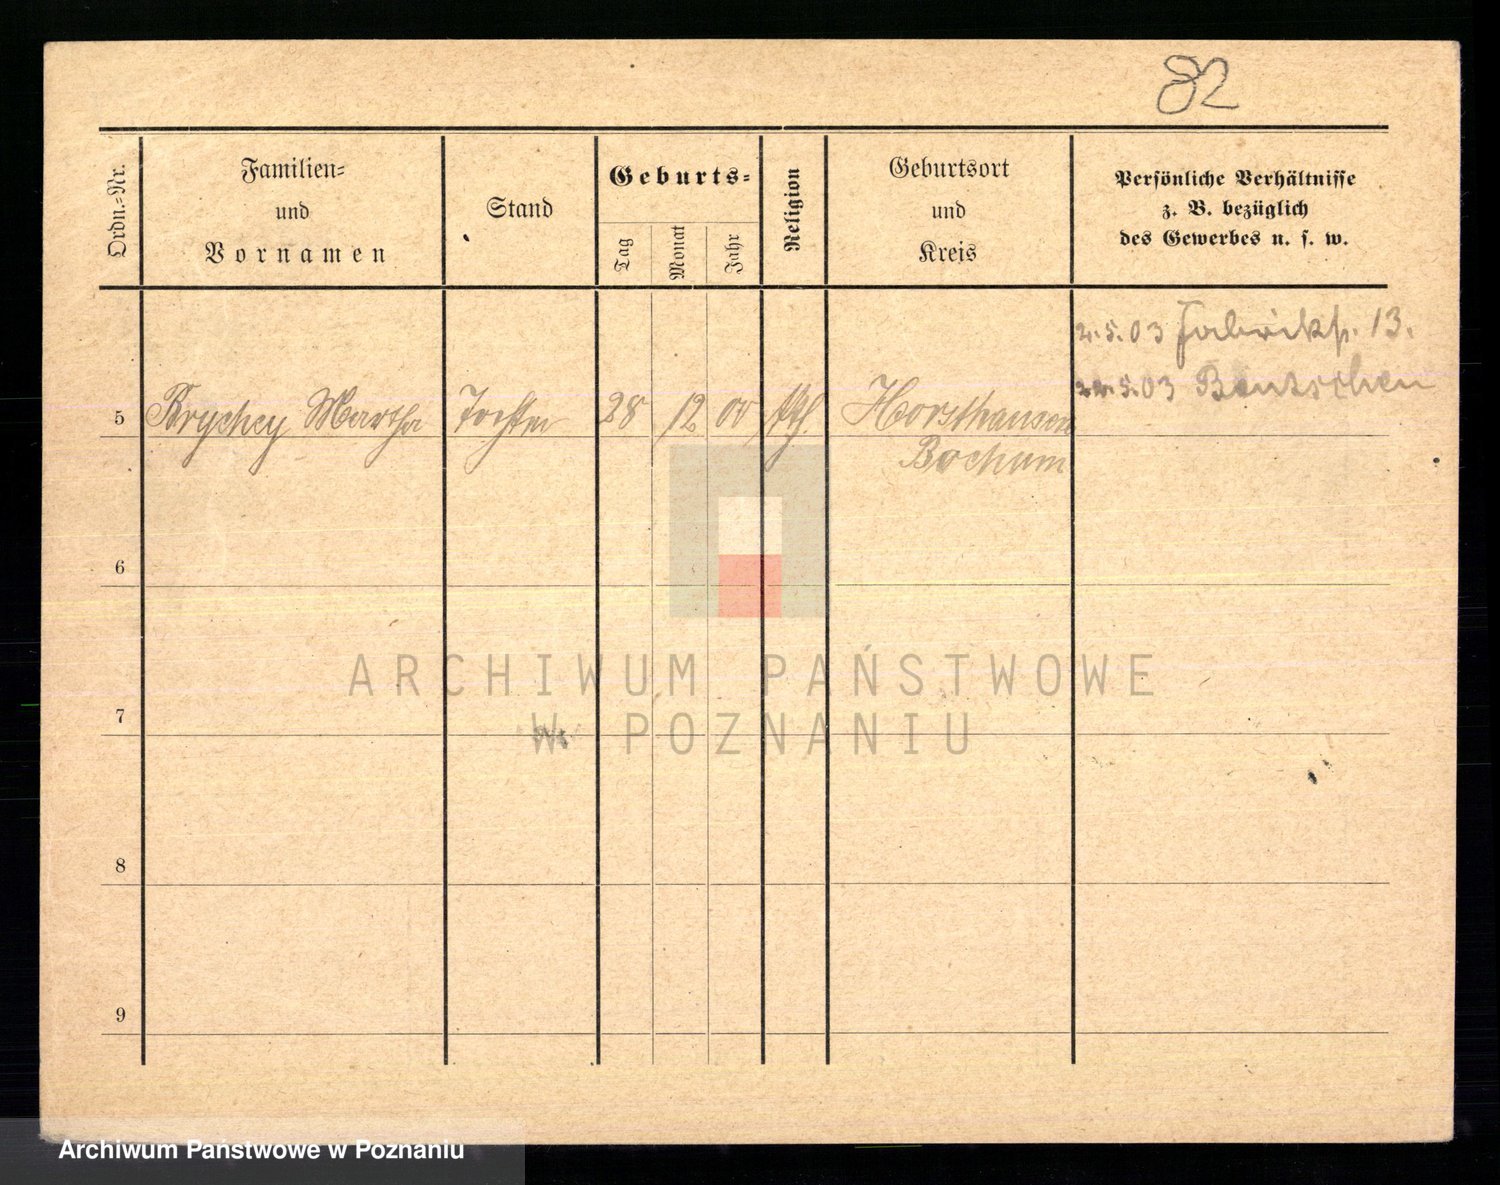 82
Ordn.-Nr.
Familien-
und
Vornamen
Stand
Geburts-
Tag
Monat
Jahr
Religion
Geburtsort
und
Kreis
Persönliche Verhältnisse
z. B. bezüglich
des Gewerbes u. s. w.
2.5.03 Fabrikstr. 13.
22.5.03 Bentschen
5 Martha Tochter 28 12 00 kth. Horsthausen
Bochum
6
7
8
9
ARCHIWUM PAŃSTWOWE
W POZNANIU
Archiwum Państwowe w Poznaniu